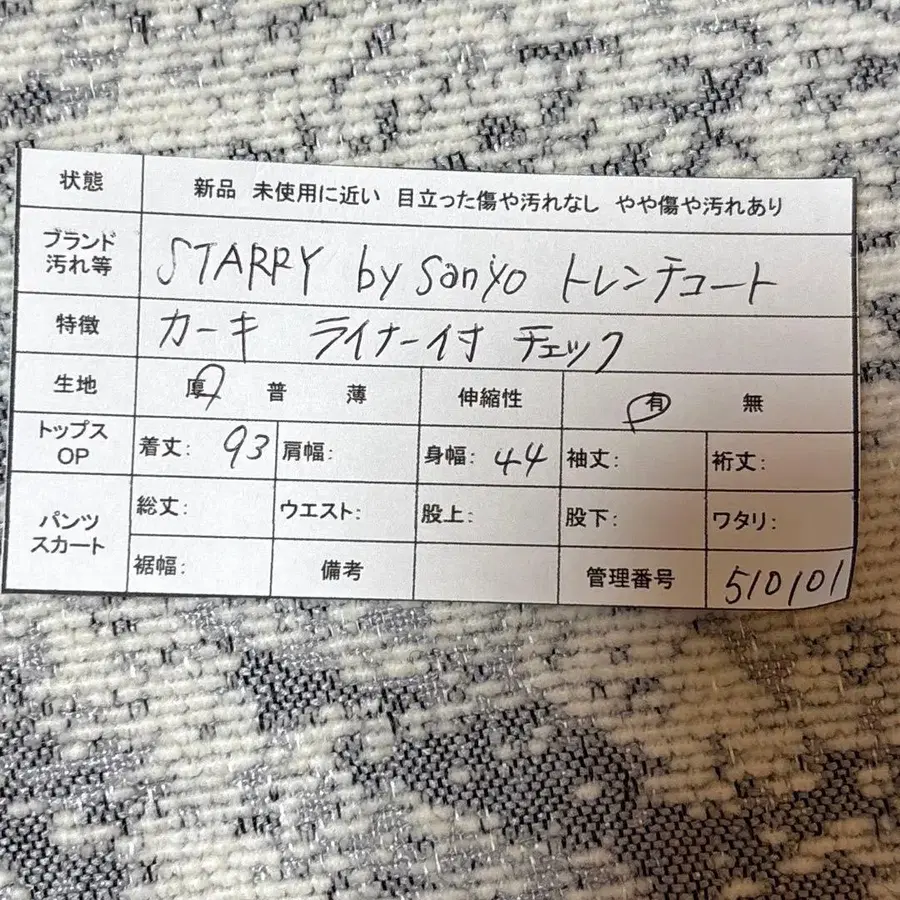 状態 新品 未使用に近い 目立った傷や汚れなし やや傷や汚れあり
ブランド
汚れ等 STARRY by Sanyo トレンチコート
特徴 カーキ ライナー付 チェック
生地 厚 普 薄 伸縮性 有 無
トップス
OP 着丈: 93 肩幅: 身幅: 44 袖丈: 裄丈:
パンツ
スカート 総丈: ウエスト: 股上: 股下: ワタリ:
裾幅: 備考 管理番号 510101